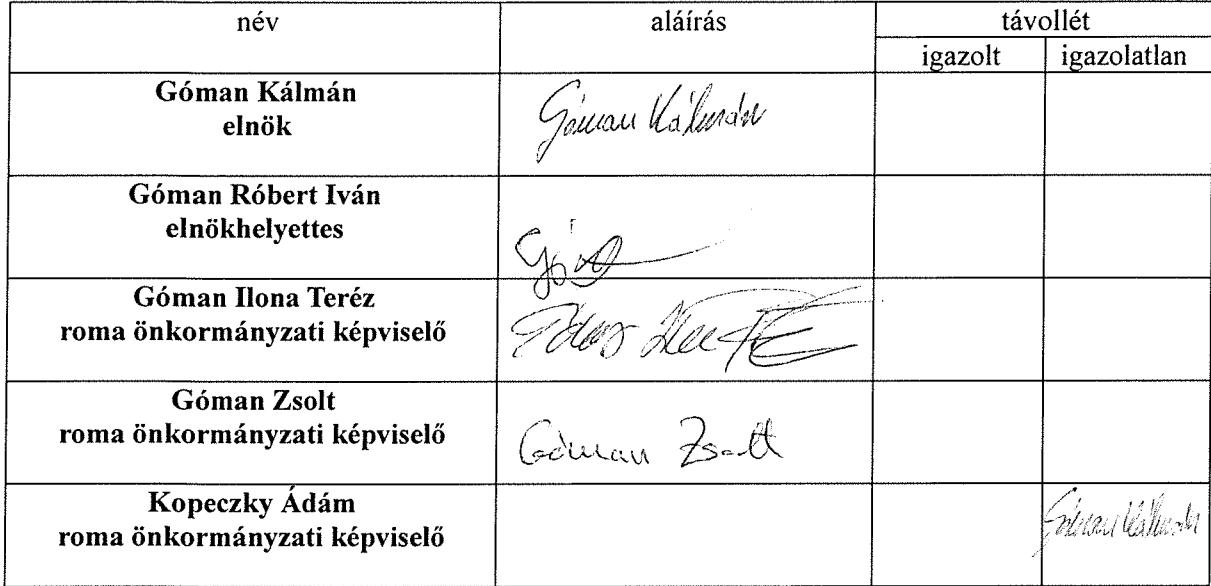 név aláírás távollét
igazolt igazolatlan
Góman Kálmán
elnök
Góman Kálmán
Góman Róbert Iván
elnökhelyettes
Góman Ilona Teréz
roma önkormányzati képviselő
Góman Zsolt
roma önkormányzati képviselő
Góman Zsolt
Kopeczky Ádám
roma önkormányzati képviselő
Góman Kálmán